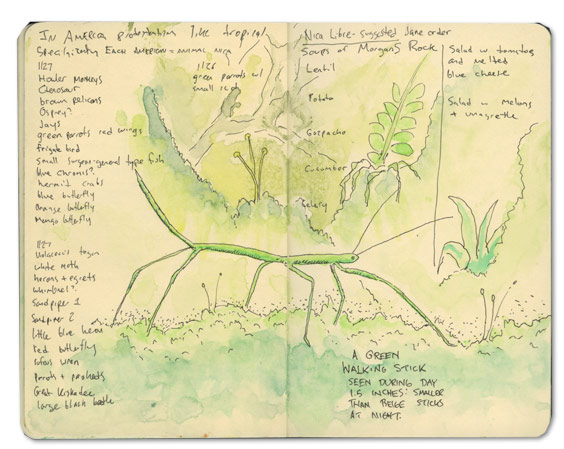 In America
tropical
1127
Howler Monkeys
brown pelicans
Osprey?
Jays
green parrots red wings
frigate bird
small surgeon-general type fish
blue Chromis?
hermit crabs
blue butterfly
orange butterfly
Mango butterfly
1126
green parrots w/
small red
1127
white moth
herons + egrets
whimbrel?
Sandpiper 1
Sandpiper 2
little blue heron
red butterfly
rufous wren
Parrots + parakeets
Great Kiskadee
large black beetle
Nica Libre - suggested Jane order
Soups of Morgan's Rock
Lentil
Potato
Gazpacho
Cucumber
Celery
Salad w tomatoes
and melted
blue cheese
Salad w Melons
+ vinagrette
A GREEN
WALKING STICK
SEEN DURING DAY
1.5 INCHES: SMALLER
THAN BEIGE STICKS
AT NIGHT.